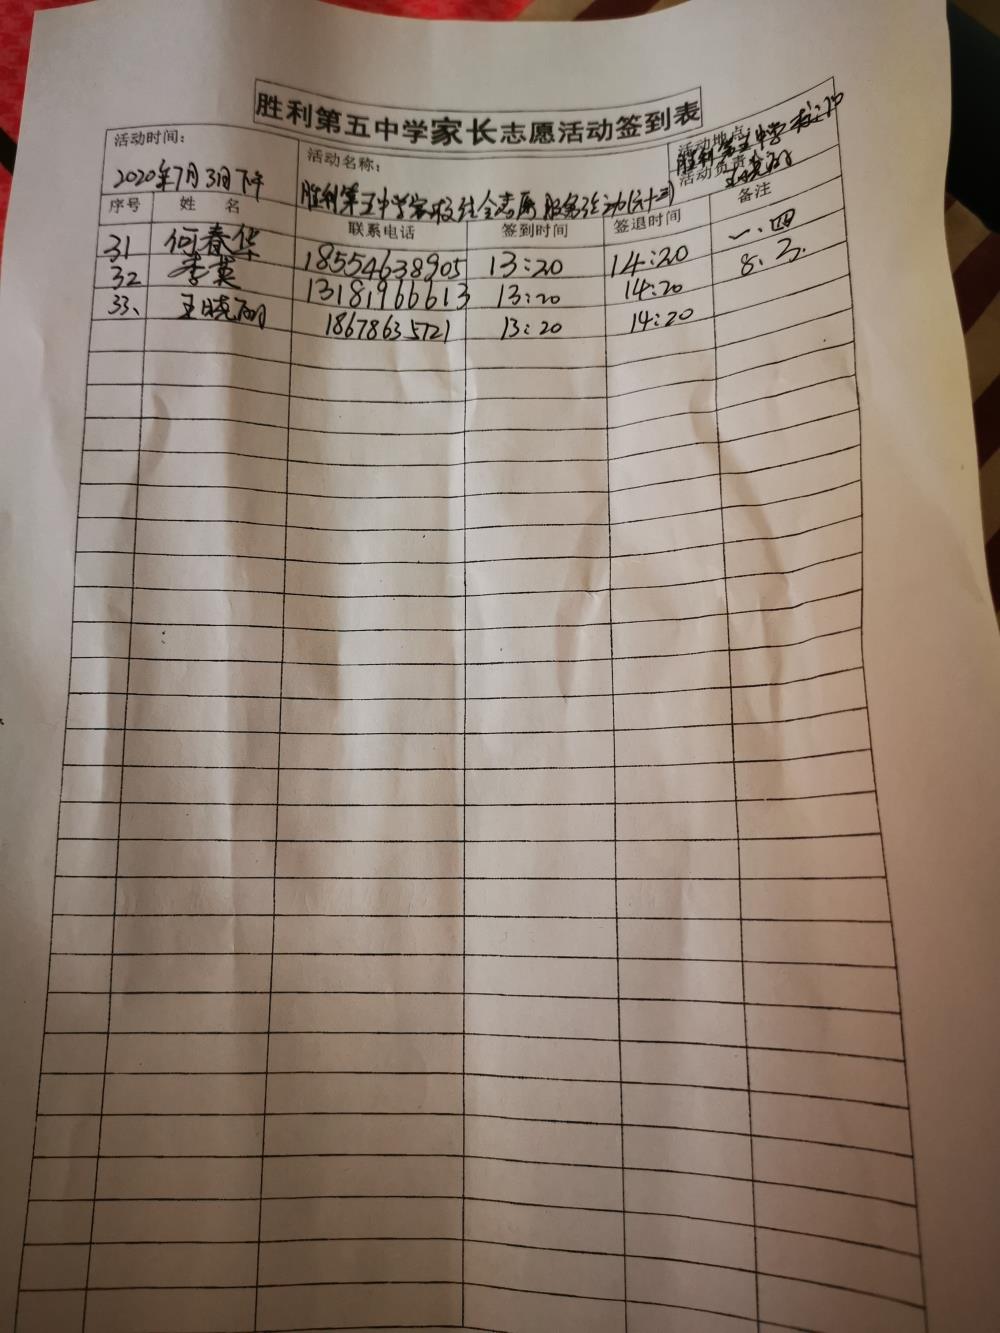 胜利第五中学家长志愿活动签到表
活动时间：
2020年7月3日下午
活动名称：
胜利第五中学学校安全志愿服务活动(六十三)
活动地点：
胜利第五中学
活动负责
王晓丽
序号 姓 名 联系电话 签到时间 签退时间 备注
31 何春华 18554638905 13:20 14:20 一、四
32 李英 13181966613 13:20 14:20 8.3.
33、 王晓丽 18678635721 13:20 14:20